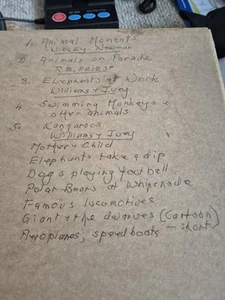 1. Animal Moments
Wesley Newman
2. Animals on Parade
3. Elephants at Work
Williams + Ivey
4. Swimming Monkeys +
other animals
5. Kangaroos
Williams + Ivey
Mother + Child
Elephants take a dip
Dogs playing football
Polar Bears at Whipsnade
Famous locomotives
Giant + the dwarves (Cartoon)
Aeroplanes, speedboats - short